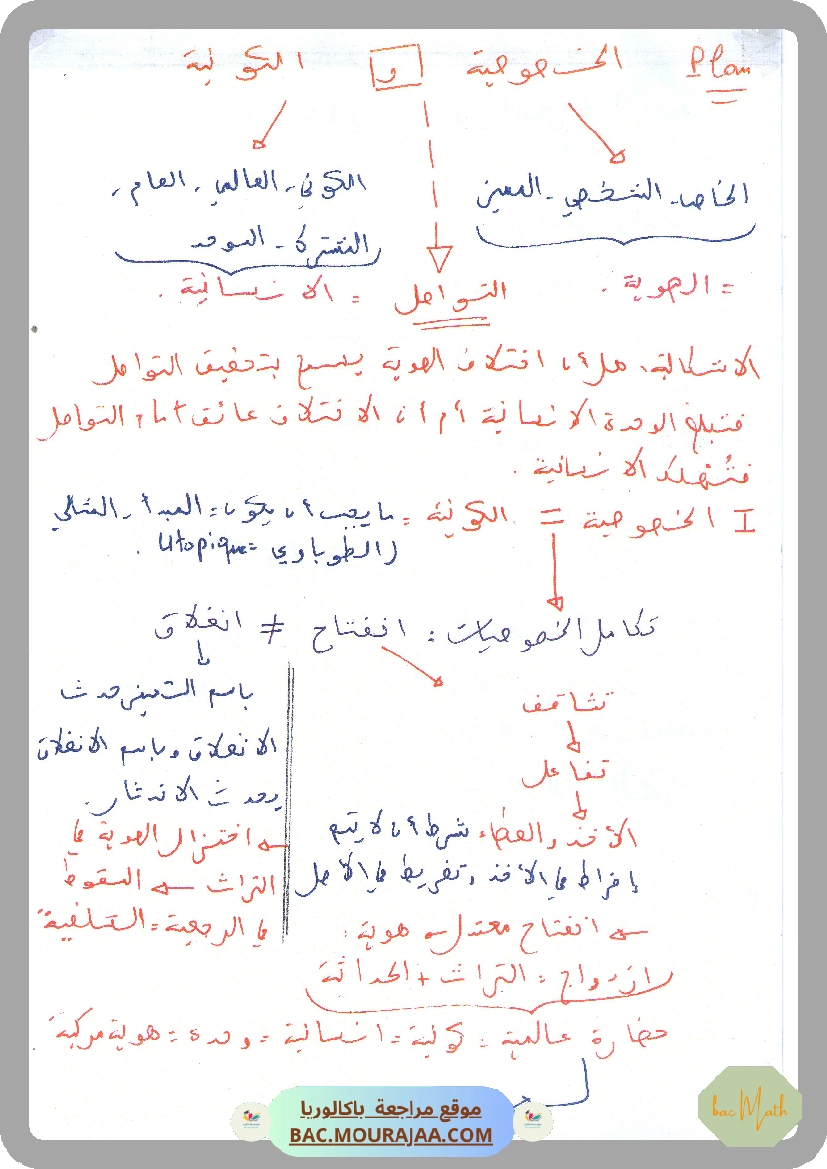 Plan الخصوصية و الكونية
الخاص - الشخصي - المعين
الكوني - العالمي - العام -
المشترك - الموحد
= الهوية .
التواصل = الانسانية .
الاشكالية: هل أن اختلاف الهوية يسمح بتحقيق التواصل
فتبلغ الوحدة الانسانية أم أن الاختلاف عائق أمام التواصل
فتُستهلك الانسانية .
I الخصوصية = الكونية = ما يجب أن يكون = المبدأ - المثالي
(الطوباوي = utopique .
تكامل الخصوصيات : انفتاح ≠ انغلاق
تثاقف
تفاعل
الأخذ والعطاء شرط أن لا يتم
إفراط في الأخذ وتفريط في الأصل
انفتاح معتدل هوية :
ازدواج = التراث + الحداثة
باسم التميز حدث
الانغلاق وباسم الانغلاق
يحدث الاندثار.
اختزال الهوية في
التراث السقوط
في الرجعية = السلفية
حضارة عالمية = كونية = انسانية = وحدة = هوية مركبة
موقع مراجعة باكالوريا
BAC.MOURAJAA.COM
bac Math